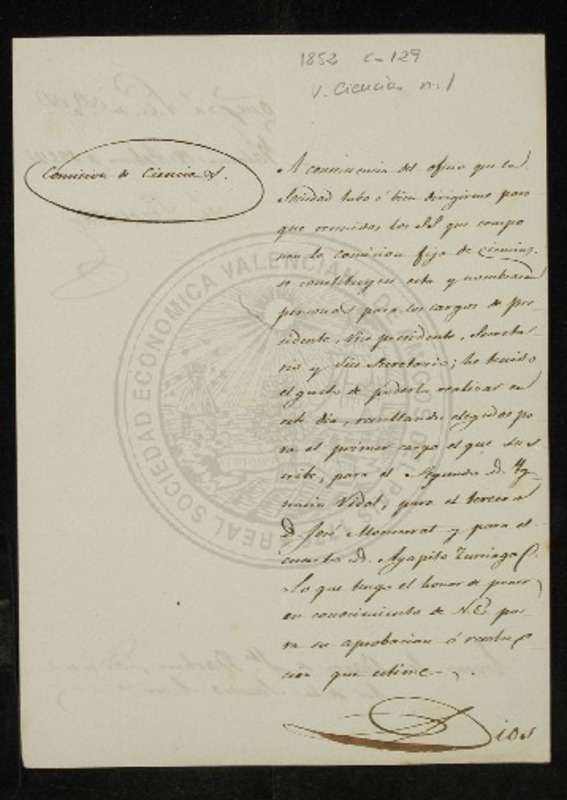 1852 C-129
V. Ciencias n. 1
Comision de Ciencias.
A consecuencia del oficio que la
Sociedad tubo á bien dirigirme para
que reunidos los SS. que compo
nen la comision fija de ciencias,
se constituyese esta y nombrase
personas para los cargos de pre
sidente, Vice presidente, Secreta
rio y Vice Secretario; he tenido
el gusto de poderlo realizar en
este dia, resultando elegidos pa
ra el primer cargo el que sus
cribe, para el segundo D. Yg
nacio Vidal, para el tercero
D. José Monserrat y para el
cuarto D. Agapito Zuriaga.
Lo que tengo el honor de poner
en conocimiento de V.E. pa
ra su aprobacion ó resolu
cion que estime.
Dios
REAL SOCIEDAD ECONOMICA VALENCIANA DE AMIGOS DEL PAIS